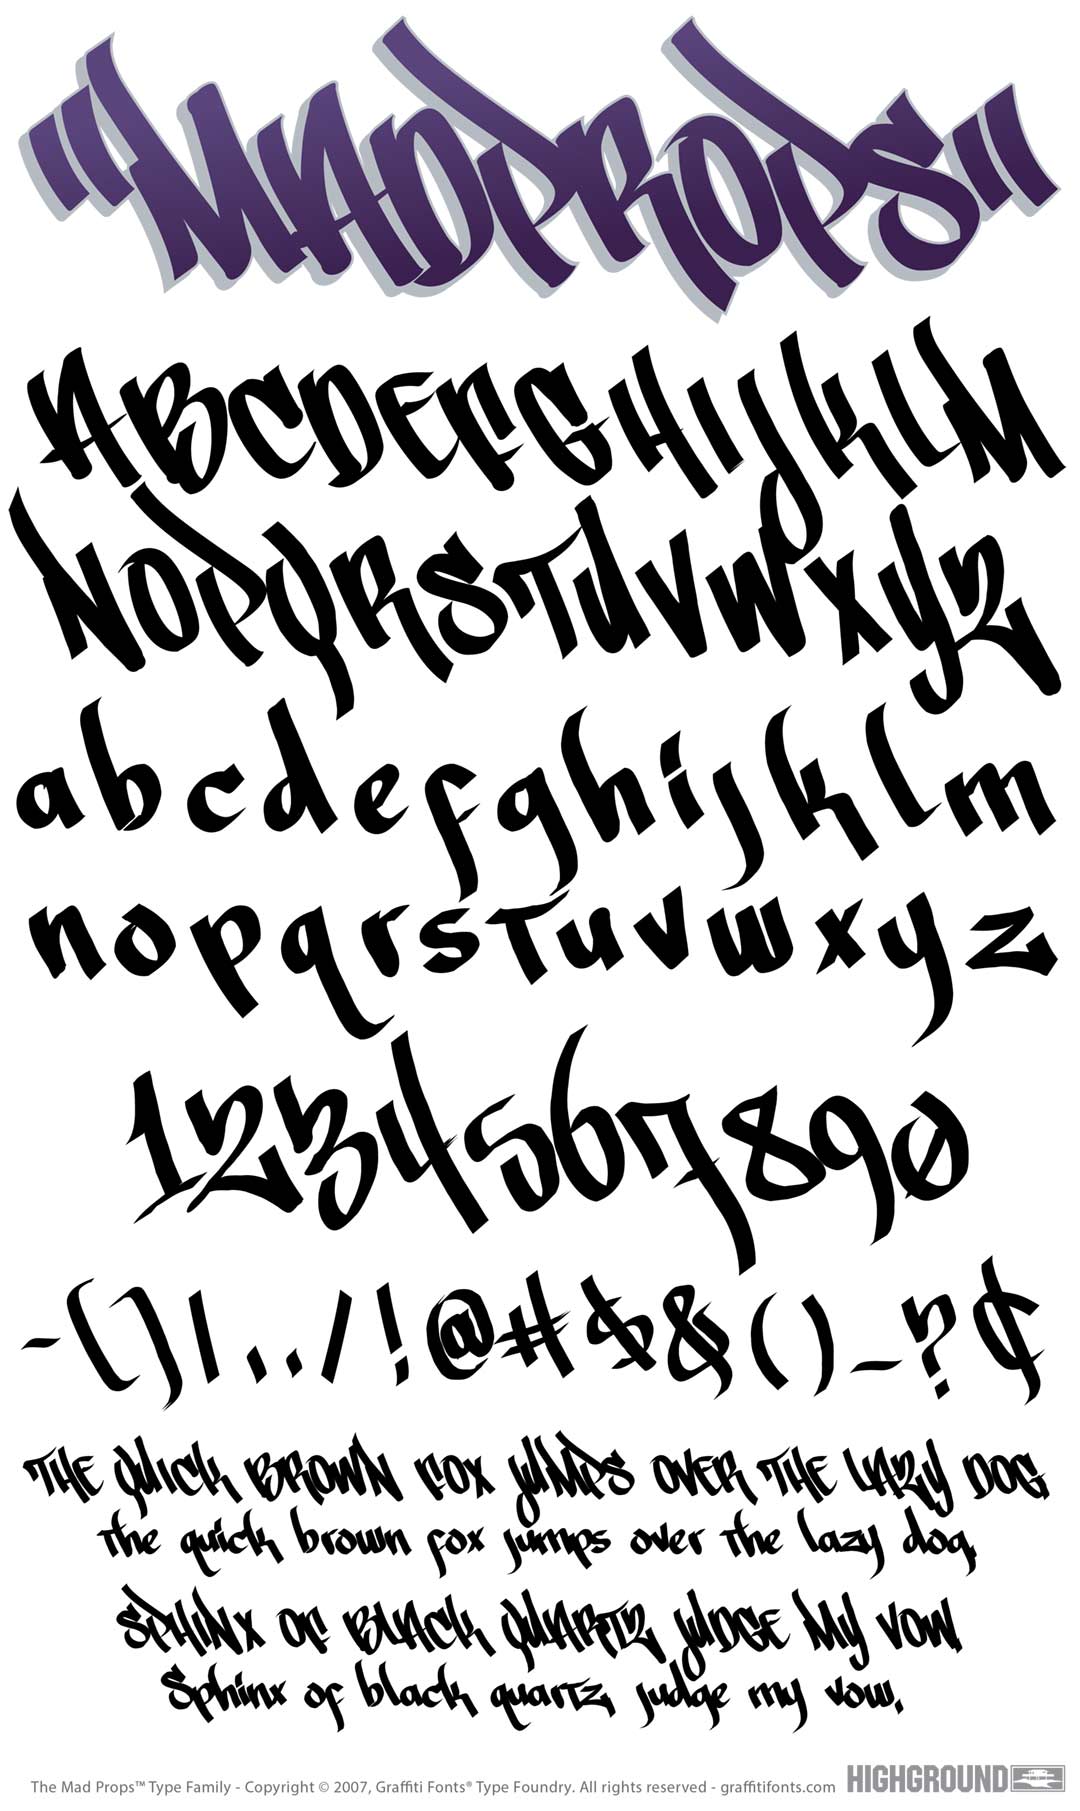 "MADPROPS"
ABCDEFGHIJKLM
NOPQRSTUVWXYZ
abcdefghijklm
nopqrstuvwxyz
1234567890
-[]|,./!@#$&()_?¢
THE QUICK BROWN FOX JUMPS OVER THE LAZY DOG
the quick brown fox jumps over the lazy dog.
SPHINX OF BLACK QUARTZ JUDGE MY VOW.
Sphinx of black quartz, judge my vow.
The Mad Props™ Type Family - Copyright © 2007, Graffiti Fonts® Type Foundry. All rights reserved - graffitifonts.com HIGHGROUND